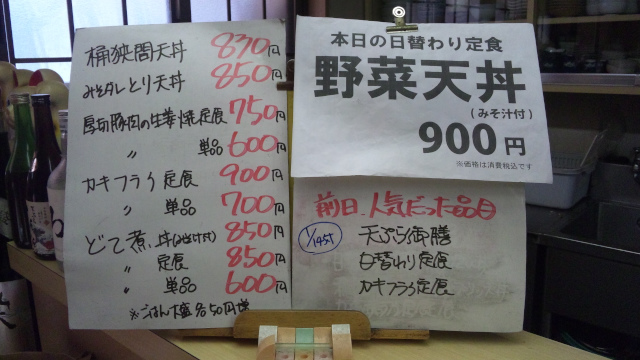 桶狭間天丼 830円
みそダレとり天丼 850円
厚切豚肉の生姜焼定食 750円
〃 単品 600円
カキフライ定食 900円
〃 単品 700円
どて煮丼(みそ汁付) 850円
〃 定食 850円
〃 単品 600円
※ごはん大盛各50円増
本日の日替わり定食
野菜天丼
(みそ汁付)
900円
※価格は消費税込です
前日、人気だった品目
天ぷら御膳
日替わり定食
カキフライ定食